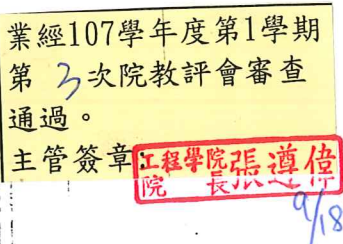 業經107學年度第1學期
第3次院教評會審查
通過。
主管簽章:工程學院院長張遵偉
9/18